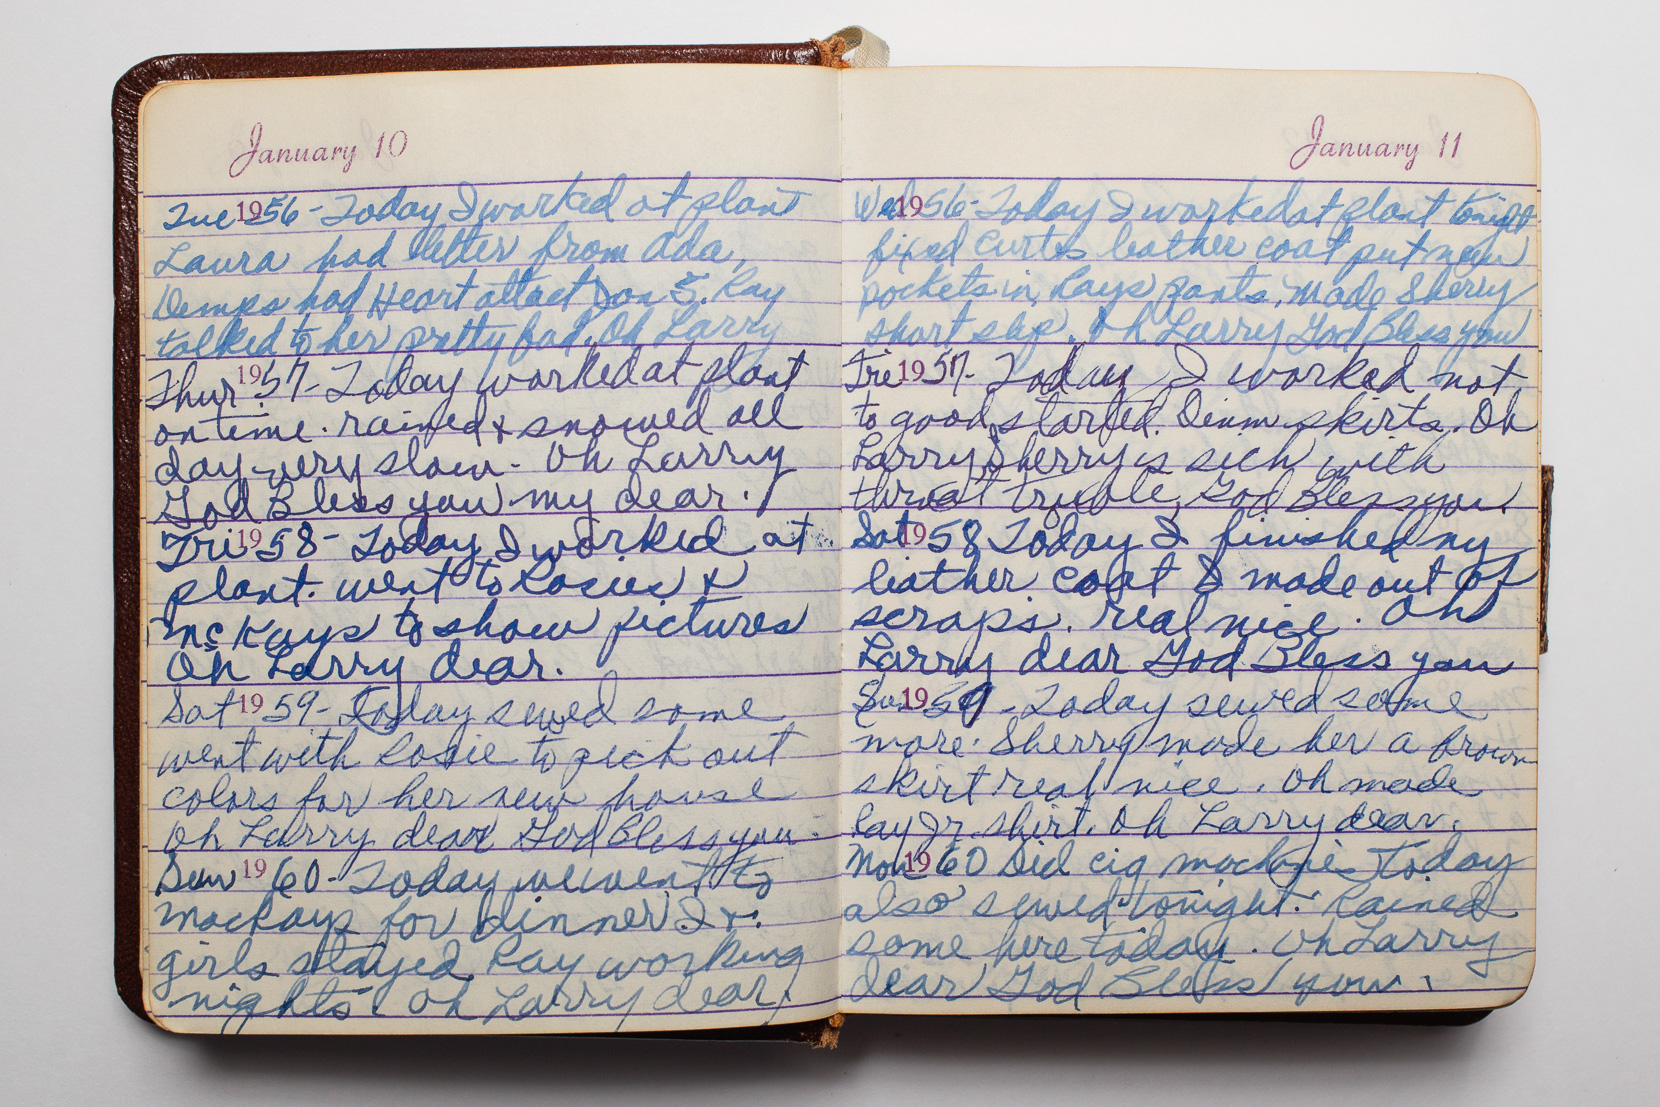 January 10
Tue 1956 - Today I worked at plant
Laura had letter from Ada,
Demps had Heart attact Jan 5. Ray
talked to her pretty bad. Oh Larry
Thur 1957 - Today worked at plant
on time. rained & snowed all
day very slow. Oh Larry
God Bless you my dear.
Fri 1958 - Today I worked at
plant. went to Rosies &
McKays to show pictures
Oh Larry dear.
Sat 1959 - Today sewed some
went with Rosie to pick out
colors for her new house
Oh Larry dear God Bless you.
Sun 1960 - Today we went to
mackays for dinner I &
girls stayed Ray working
nights. Oh Larry dear.
January 11
Wed 1956 - Today I worked at plant tonight
fixed Curtis leather coat put new
pockets in Rays pants. Made Sherry
short slip. Oh Larry God Bless you
Fri 1957 - Today I worked not
to good started Dinm skirts. Oh
Larry Sherry is sick with
throat truble, God Bless you.
Sat 1958 Today I finished my
leather coat I made out of
scraps. real nice. Oh
Larry dear God Bless you
Sun 1959 - Today sewed some
more. Sherry made her a brown
skirt real nice. Oh made
Ray Jr. shirt. Oh Larry dear.
Mon 1960 Did cig machine Today
also sewed tonight. Rained
some here today. Oh Larry
dear God Bless you.